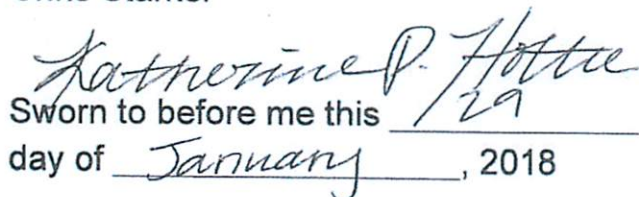 Katherine P. Hottle
Sworn to before me this 29
day of January, 2018